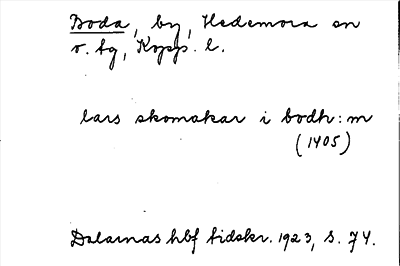 Boda, by, Hedemora sn
v. tg, Kopp. l.
lars skomakar i bodh:m
(1405)
Dalarnas hbf tidskr. 1923, s. 74.